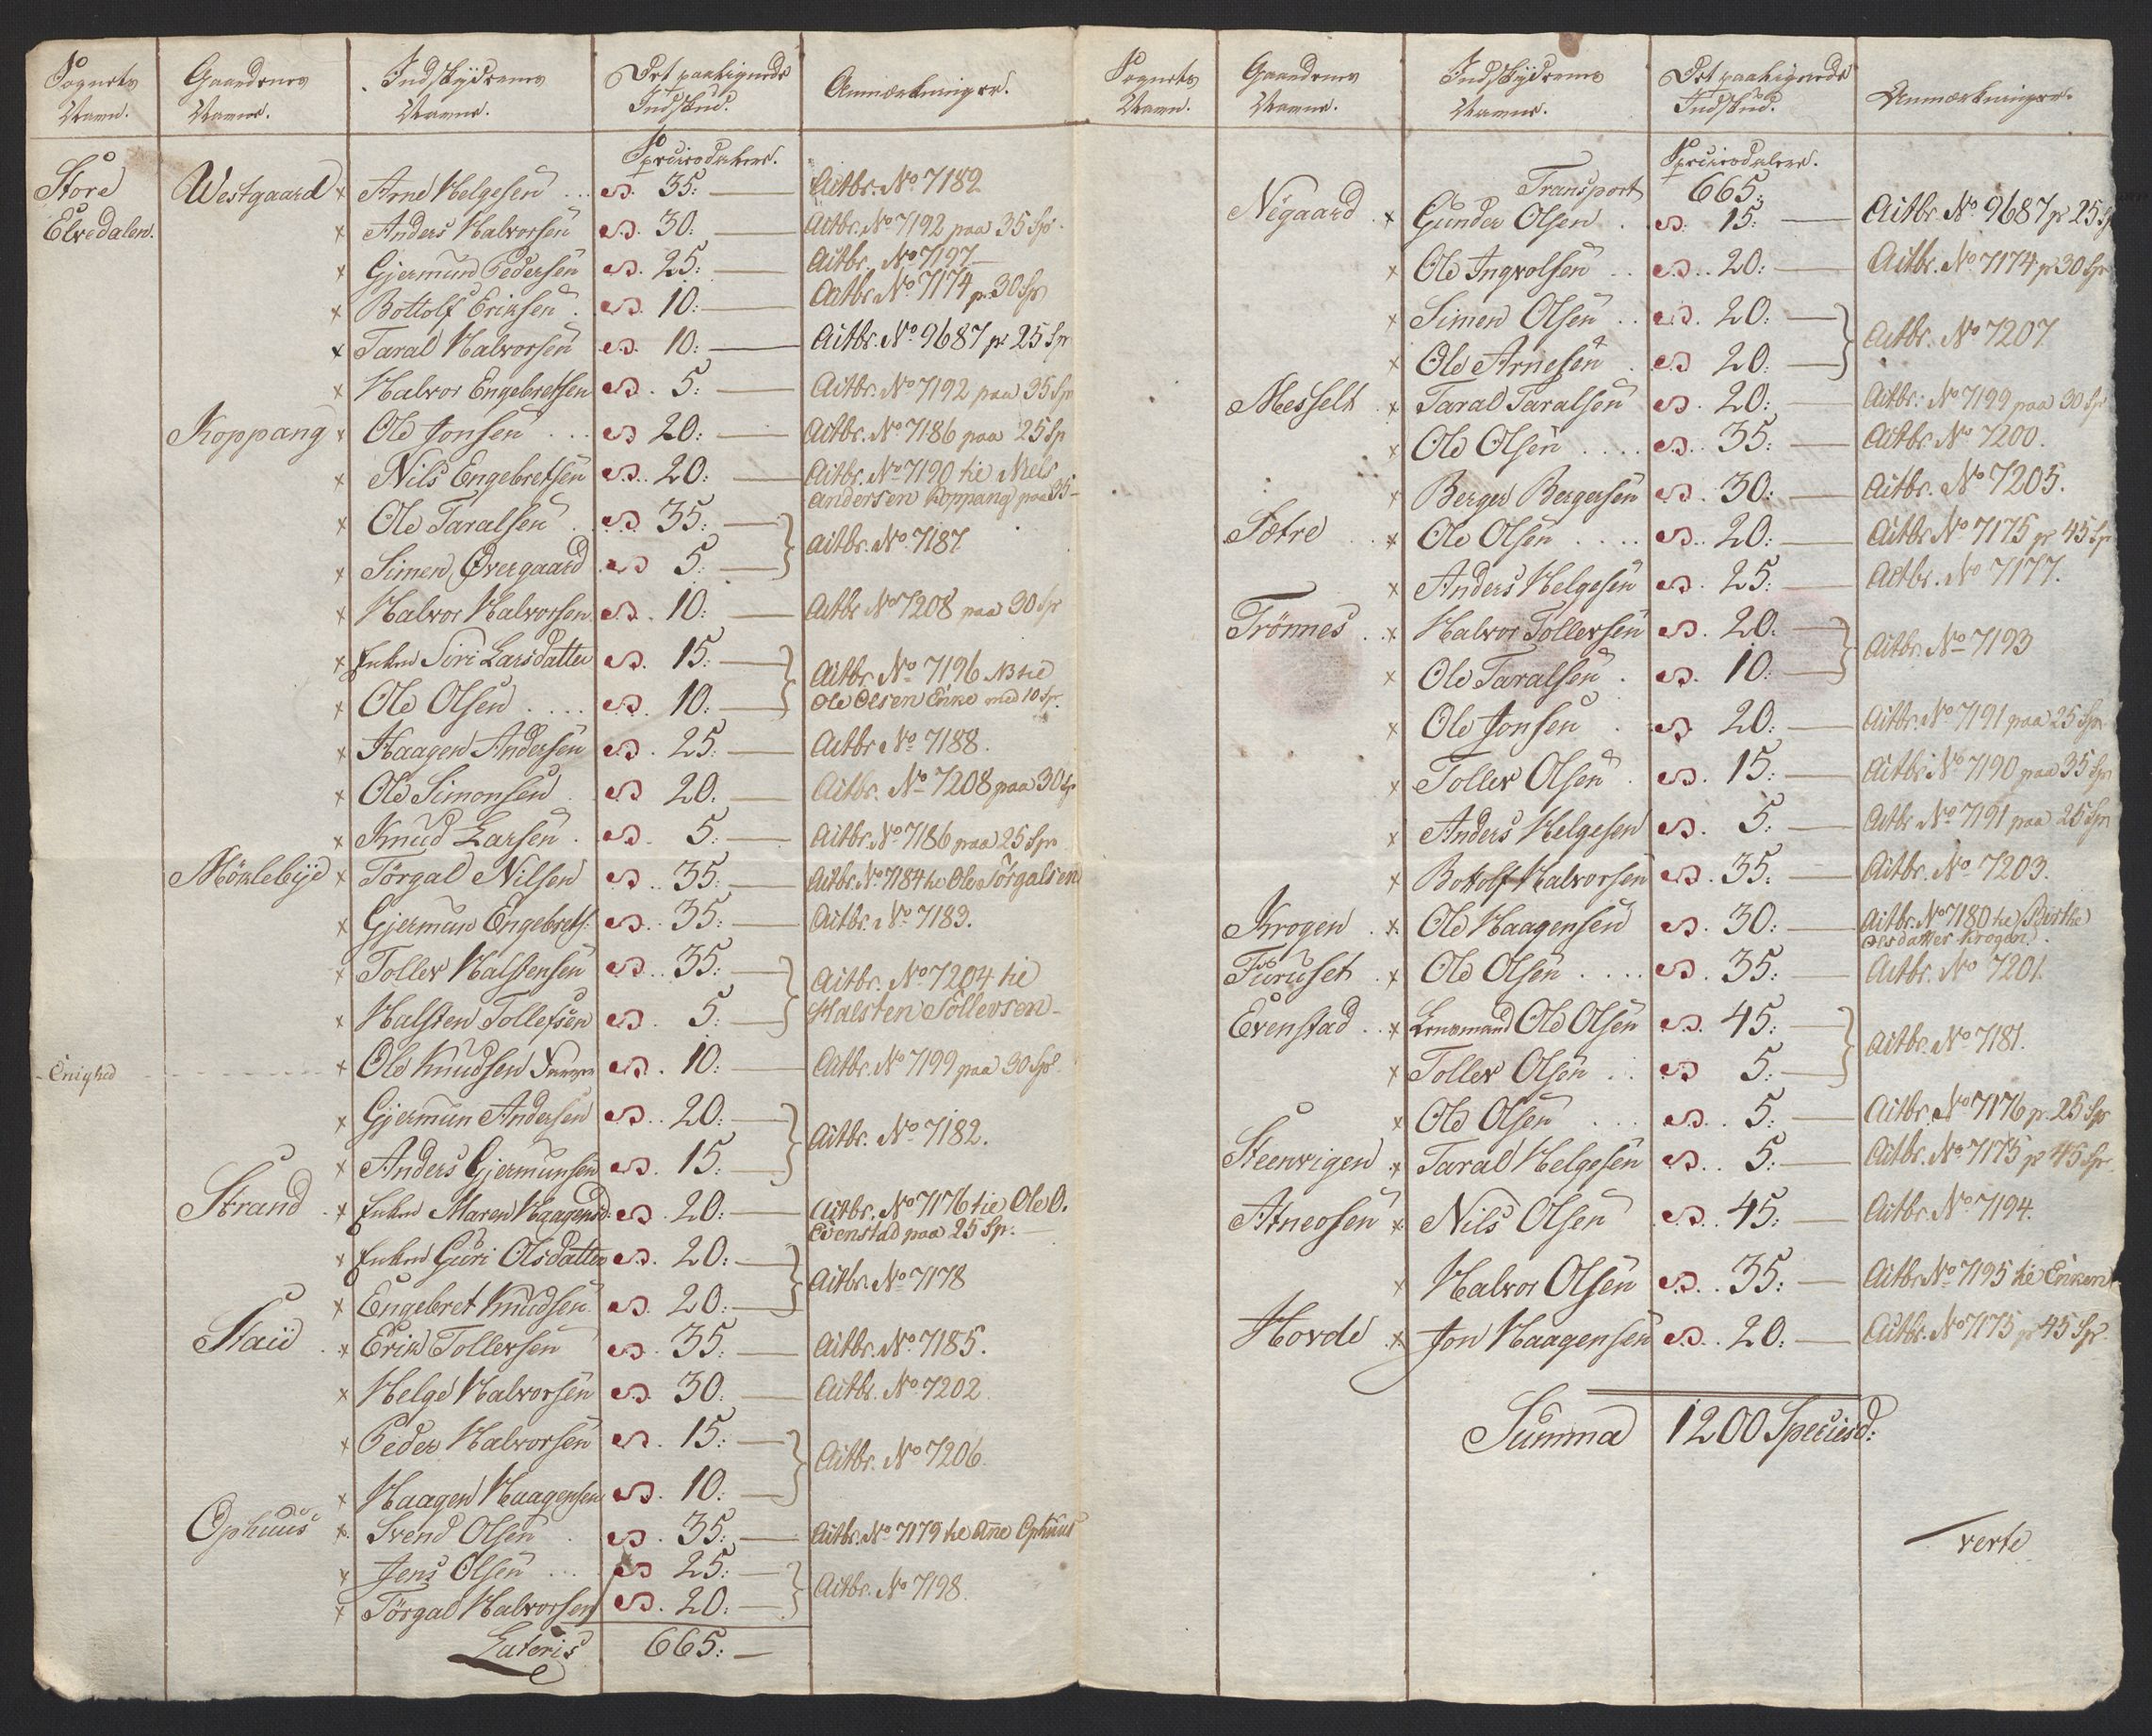 Sognets Navn. Gaardenes Navne. Indskydernes Navne. Det paalignede Indskud. Anmærkninger.
Speciesdalere.
Store Westgaard x Arne Helgesen .. 35: — Actbr. No 7189
Elvedalen. x Anders Halvorsen 30: — Actbr. No 7192 paa 35 Sp.
x Gjermund Pedersen 25: — Actbr. No 7197
x Bottolf Eriksen . 10: — Actbr. No 7174 p. 30 Sp
x Taral Halvorsen 10: — Actbr. No 9687 pr 25 Sp
x Halvor Engebretsen 5: — Actbr. No 7192 paa 35 Sp
Koppang x Ole Jonsen ... 20: — Actbr. No 7186 paa 25 Sp
x Nils Engebretsen 20: — Actbr. No 7190 til Niels
Andersen Koppang paa 35 –
x Ole Taralsen . 35: —
x Simen Øvergaard 5: — } Actbr. No 7187
x Halvor Halvorsen 10: — Actbr No 7208 paa 30 Sp
x Enken Siri Larsdatter 15: — Actbr. No 7196 NB til
x Ole Olsen .... 10: — } Ole Olsen Enke med 10 Sp.
x Haagen Andersen 25: — Actbr No 7188.
x Ole Simonsen 20. — Actbr. No 7208 paa 30 Sp
x Knud Larsen . 5: — Actbr. No 7186 paa 25 Spr
Möklebÿe x Törgal Nilsen 35: — Actbr. No 7184 til Ole Törgalsen
x Gjermun Engebrets: 35: — Actbr. No 7183.
x Toller Halstensen 35: — Actbr. No 7204 til
x Halsten Tollefsen 5: — } Halsten Tollevsen –
Enighed x Ole Knudsen 10: — Actbr. No 7199 paa 30 Sp
x Gjermun Andersen 20: —
x Anders Gjermunsen 15: — } Actbr. No 7182.
Strand . x Enken Maren Haagensd: 20: — Actbr. No 7176 til Ole O.
Evenstad paa 25 Sp. —
x Enken Guri Olsdatter 20: —
x Engebret Knudsen 20: — } Actbr. No 7178
Staii . x Erik Tollersen 35: — Actbr. No 7185.
x Helge Halvorsen 30: — Actbr. No 7202
x Peder Halvorsen 15: —
x Haagen Haagensen 10: — } Actbr. No 7206.
Ophuus x Svend Olsen . 35: — Actbr. No 7179 til Ane Ophuus
x Jens Olsen ... 25: —
x Törgal Halvorsen 20: — } Actbr. No 7198
Lateris 665: —
Sognets Navn. Gaardenes Navne. Indskydernes Navne. Det paalignede Indskud. Anmærkninger.
Speciesdalere.
Transport 665:
Negaard . x Gunder Olsen . 15: — Actbr. No 9687 pr 25 Sp
x Ole Ingvolsen .. 20: — Actbr. No 7174 pr 30 Sp
x Simen Olsen .. 20: —
x Ole Arnesen . 20: — } Actbr. No 7207
Messelt . x Taral Taralsen 20: — Actbr: No 7199 paa 30 Sp
x Ole Olsen .... 35: — Actbr No 7200.
x Berger Bergersen 30: — Actbr. No 7205.
Sætre .. x Ole Olsen .... 20: — Actbr No 7175 pr 45 Sp
x Anders Helgesen 25: — Actbr. No 7177.
Trönnes . x Halvor Tollersen 20. —
x Ole Taralsen . 10: — } Actbr. No 7193
x Ole Jonsen . 20: — Actbr. No 7191 paa 25 Spr
x Toller Olsen . 15: — Actbr. No 7190 paa 35 Spr
x Anders Helgesen 5: — Actbr No 7191 paa 25 Spr
x Bottolf Halvorsen 35: — Actbr. No 7203.
Krogen . x Ole Haagensen 30: — Actbr. No 7180 til Birthe
Olsdatter Krogen.
Furuset . x Ole Olsen .... 35: — Actbr. No 7201.
Evenstad .. x Lensmand Ole Olsen 45: —
x Toller Olsen .. 5: — } Actbr. No 7181.
x Ole Olsen ... 5: — Actbr. No 7176 p. 25 Sp
Steenvigen x Taral Helgesen 5: — Actbr. No 7175 pr 45 Sp.
Atneosen x Nils Olsen 45: — Actbr. No 7194.
x Halvor Olsen 35: — Actbr No 7195 til Enken
Hovde . x Jon Haagensen 20: — Actbr. No 7175 pr 45 Sp.
Summa 1200 Speciesd:
verte